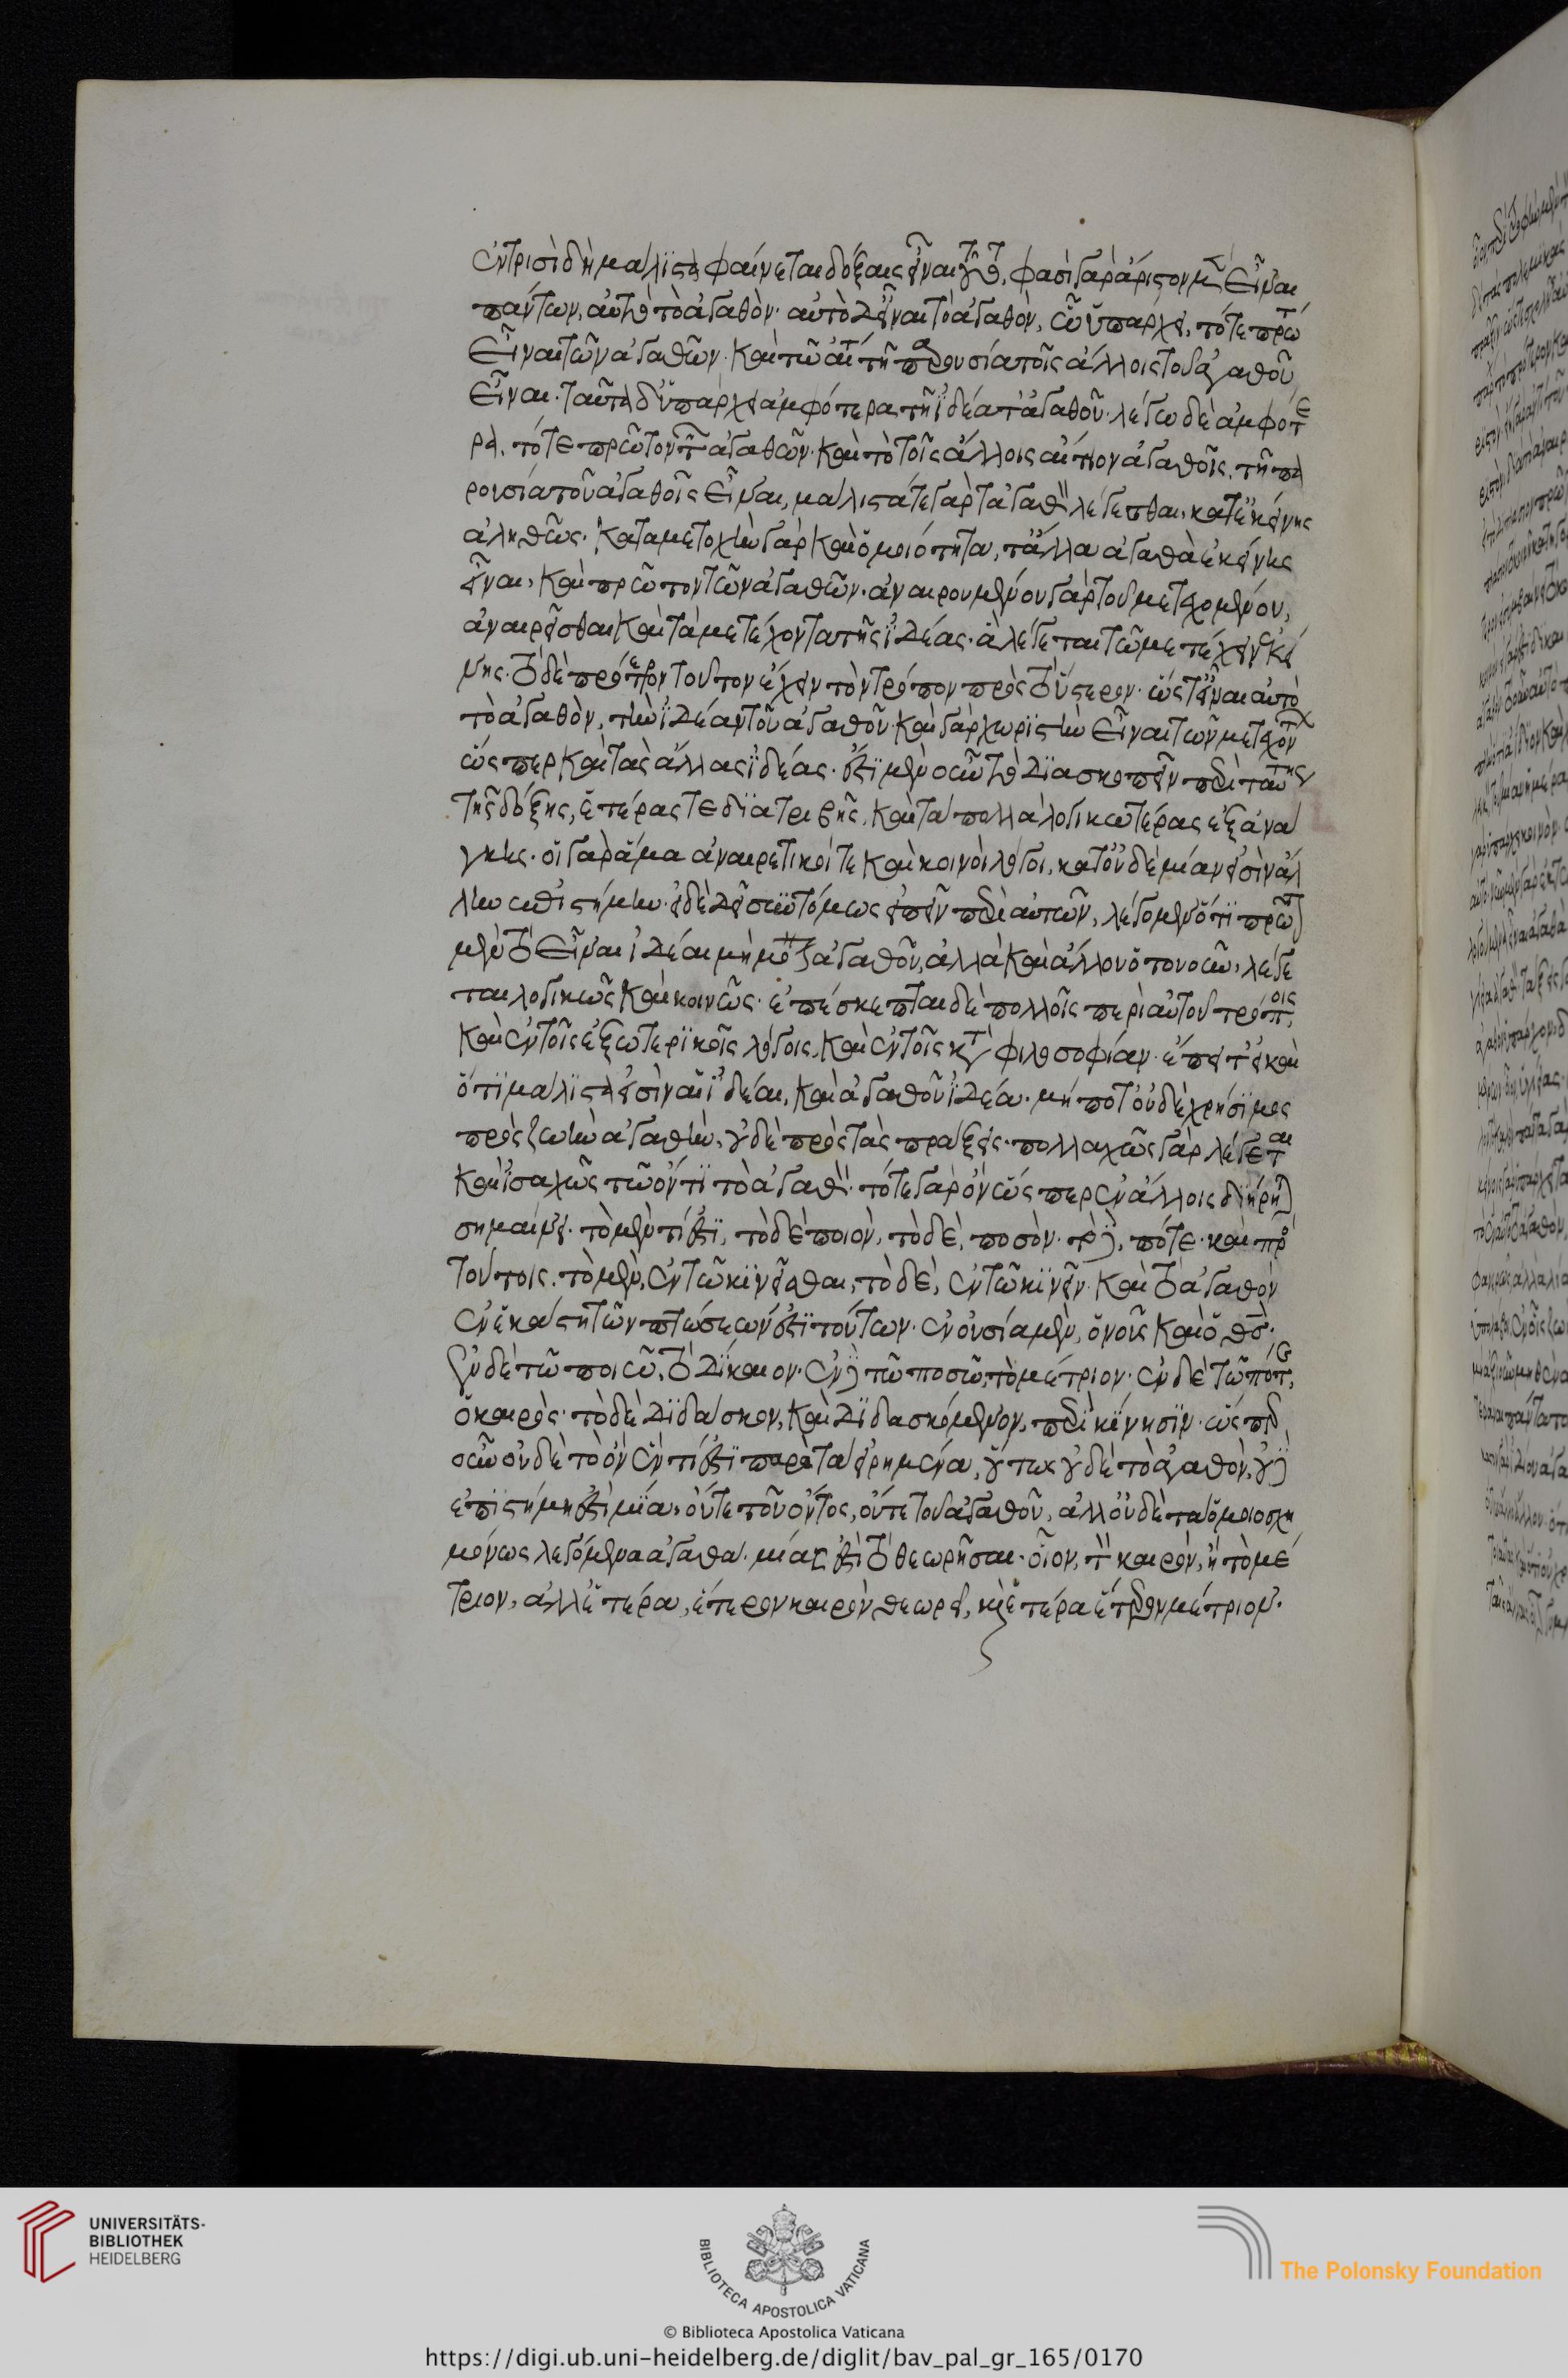 ἐν τρισὶ δὴ μάλιστα φαίνεται δόξαις εἶναι . φασὶ γὰρ ἄριστον μὲν εἶναι
πάντων, αὐτὸ τὸ ἀγαθὸν· αὐτὸ δ' εἶναι τὸ ἀγαθὸν, ᾧ ὑπάρχει, τό τε πρώτ
εἶναι τῶν ἀγαθῶν· καὶ τῷ αἰτ τῇ παρουσία τοῖς ἄλλοις τοῦ ἀγαθοῦ
εἶναι. ταῦτα δ' ὑπάρχει ἀμφότερα τῇ ἰδέα τ' ἀγαθοῦ· λέγω δὲ ἀμφότε
ρα, τό τε πρῶτον τῶν ἀγαθῶν· καὶ τὸ τοῖς ἄλλοις αἴτιον ἀγαθοῖς, τῇ πα
ρουσία τοῦ ἀγαθοῖς εἶναι, μάλιστά τε γὰρ τἀγαθὸν λέγεσθαι, κατ' ἐκείνης
ἀληθῶς· κατὰ μετοχὴν γὰρ καὶ ὁμοιότητα, τἄλλα ἀγαθὰ ἐκείνης
εἶναι, καὶ πρῶτον τῶν ἀγαθῶν· ἀναιρουμένου γὰρ τοῦ μετεχομένου,
ἀναιρεῖσθαι καὶ τὰ μετέχοντα τῆς ἰδέας· ἃ λέγεται τῷ μετέχειν ἐκεί
νης. τὸ δὲ πρότερον τοῦτον ἔχειν τὸν τρόπον πρὸς τὸ ὕστερον· ὥστ' εἶναι αὐτὸ
τὸ ἀγαθὸν, τὴν ἰδέαν τοῦ ἀγαθοῦ· καὶ γὰρ χωριστὴν εἶναι τῶν μετεχόντ
ὥσπερ καὶ τὰς ἄλλας ἰδέας. ἔστι μὲν οὖν τὸ διασκοπεῖν περὶ ταύτης
τῆς δόξης, ἑτέρας τε διατριβῆς, καὶ τὰ πολλὰ λογικωτέρας ἐξ ἀνά
γκης. οἱ γὰρ ἅμα ἀναιρετικοί τε καὶ κοινοὶ λόγοι, κατ' οὐδεμίαν εἰσὶν ἄλ
λην ἐπιστήμην. εἰ δὲ δεῖ συντόμως εἰπεῖν περὶ αὐτῶν, λέγομεν ὅτι πρῶτον
μὲν τὸ εἶναι ἰδέαι μὴ μόνον ἀγαθοῦ, ἀλλὰ καὶ ἄλλου ὁτουοῦν, λέγε
ται λογικῶς καὶ κοινῶς· ἐπέσκεπται δὲ πολλοῖς περὶ αὐτοῦ τρόποις,
καὶ ἐν τοῖς ἐξωτερικοῖς λόγοις, καὶ ἐν τοῖς κατὰ φιλοσοφίαν· ἔπειτ' εἰ καὶ
ὅτι μάλιστα εἰσὶν αἱ ἰδέαι, καὶ ἀγαθοῦ ἰδέα. μή ποτ' οὐδὲ χρήσιμος
πρὸς ζωὴν ἀγαθὴν, οὐδὲ πρὸς τὰς πράξεις· πολλαχῶς γὰρ λέγεται
καὶ ἰσαχῶς τῷ ὄντι τὸ ἀγαθὸν· τό τε γὰρ ὂν ὥσπερ ἐν ἄλλοις διήρηται
σημαίνει. τὸ μὲν τί ἐστι, τὸ δὲ ποιὸν, τὸ δὲ, ποσὸν· τὸ δὲ, πότε· καὶ πρὸ
τούτοις. τὸ μὲν, ἐν τῷ κινεῖσθαι, τὸ δὲ, ἐν τῷ κινεῖν· καὶ τὸ ἀγαθὸν
ἐν ἑκάστη τῶν πτώσεών ἐστι τούτων· ἐν οὐσία μὲν, ὁ νοῦς καὶ ὁ θς·
ἐν δὲ τῷ ποιῶ, τὸ δίκαιον· ἐν δὲ τῷ ποσῶ, τὸ μέτριον· ἐν δὲ τῷ πότε,
ὁ καιρός· τὸ δὲ διδάσκον, καὶ διδασκόμενον, περὶ κίνησιν· ὥσπερ
οὖν οὐδὲ τὸ ὂν ἕν τί ἐστι παρὰ τὰ εἰρημένα, οὕτως οὐδὲ τὸ ἀγαθὸν, οὐδὲ
ἐπιστήμη ἐστὶ μία, οὔτε τοῦ ὄντος, οὔτε τοῦ ἀγαθοῦ, ἀλλ' οὐδὲ τὰ ὁμοιοσχη
μόνως λεγόμενα ἀγαθὰ· μίας ἐστὶ τὸ θεωρῆσαι· οἷον, τὸν καιρὸν, ἢ τὸ μέ
τριον, ἀλλ' ἑτέρα, ἕτερον καιρὸν θεωρεῖ, καὶ ἑτέρα ἕτερον μέτριον.
UNIVERSITÄTS-
BIBLIOTHEK
HEIDELBERG
BIBLIOTECA APOSTOLICA VATICANA
The Polonsky Foundation
© Biblioteca Apostolica Vaticana
https://digi.ub.uni-heidelberg.de/diglit/bav_pal_gr_165/0170